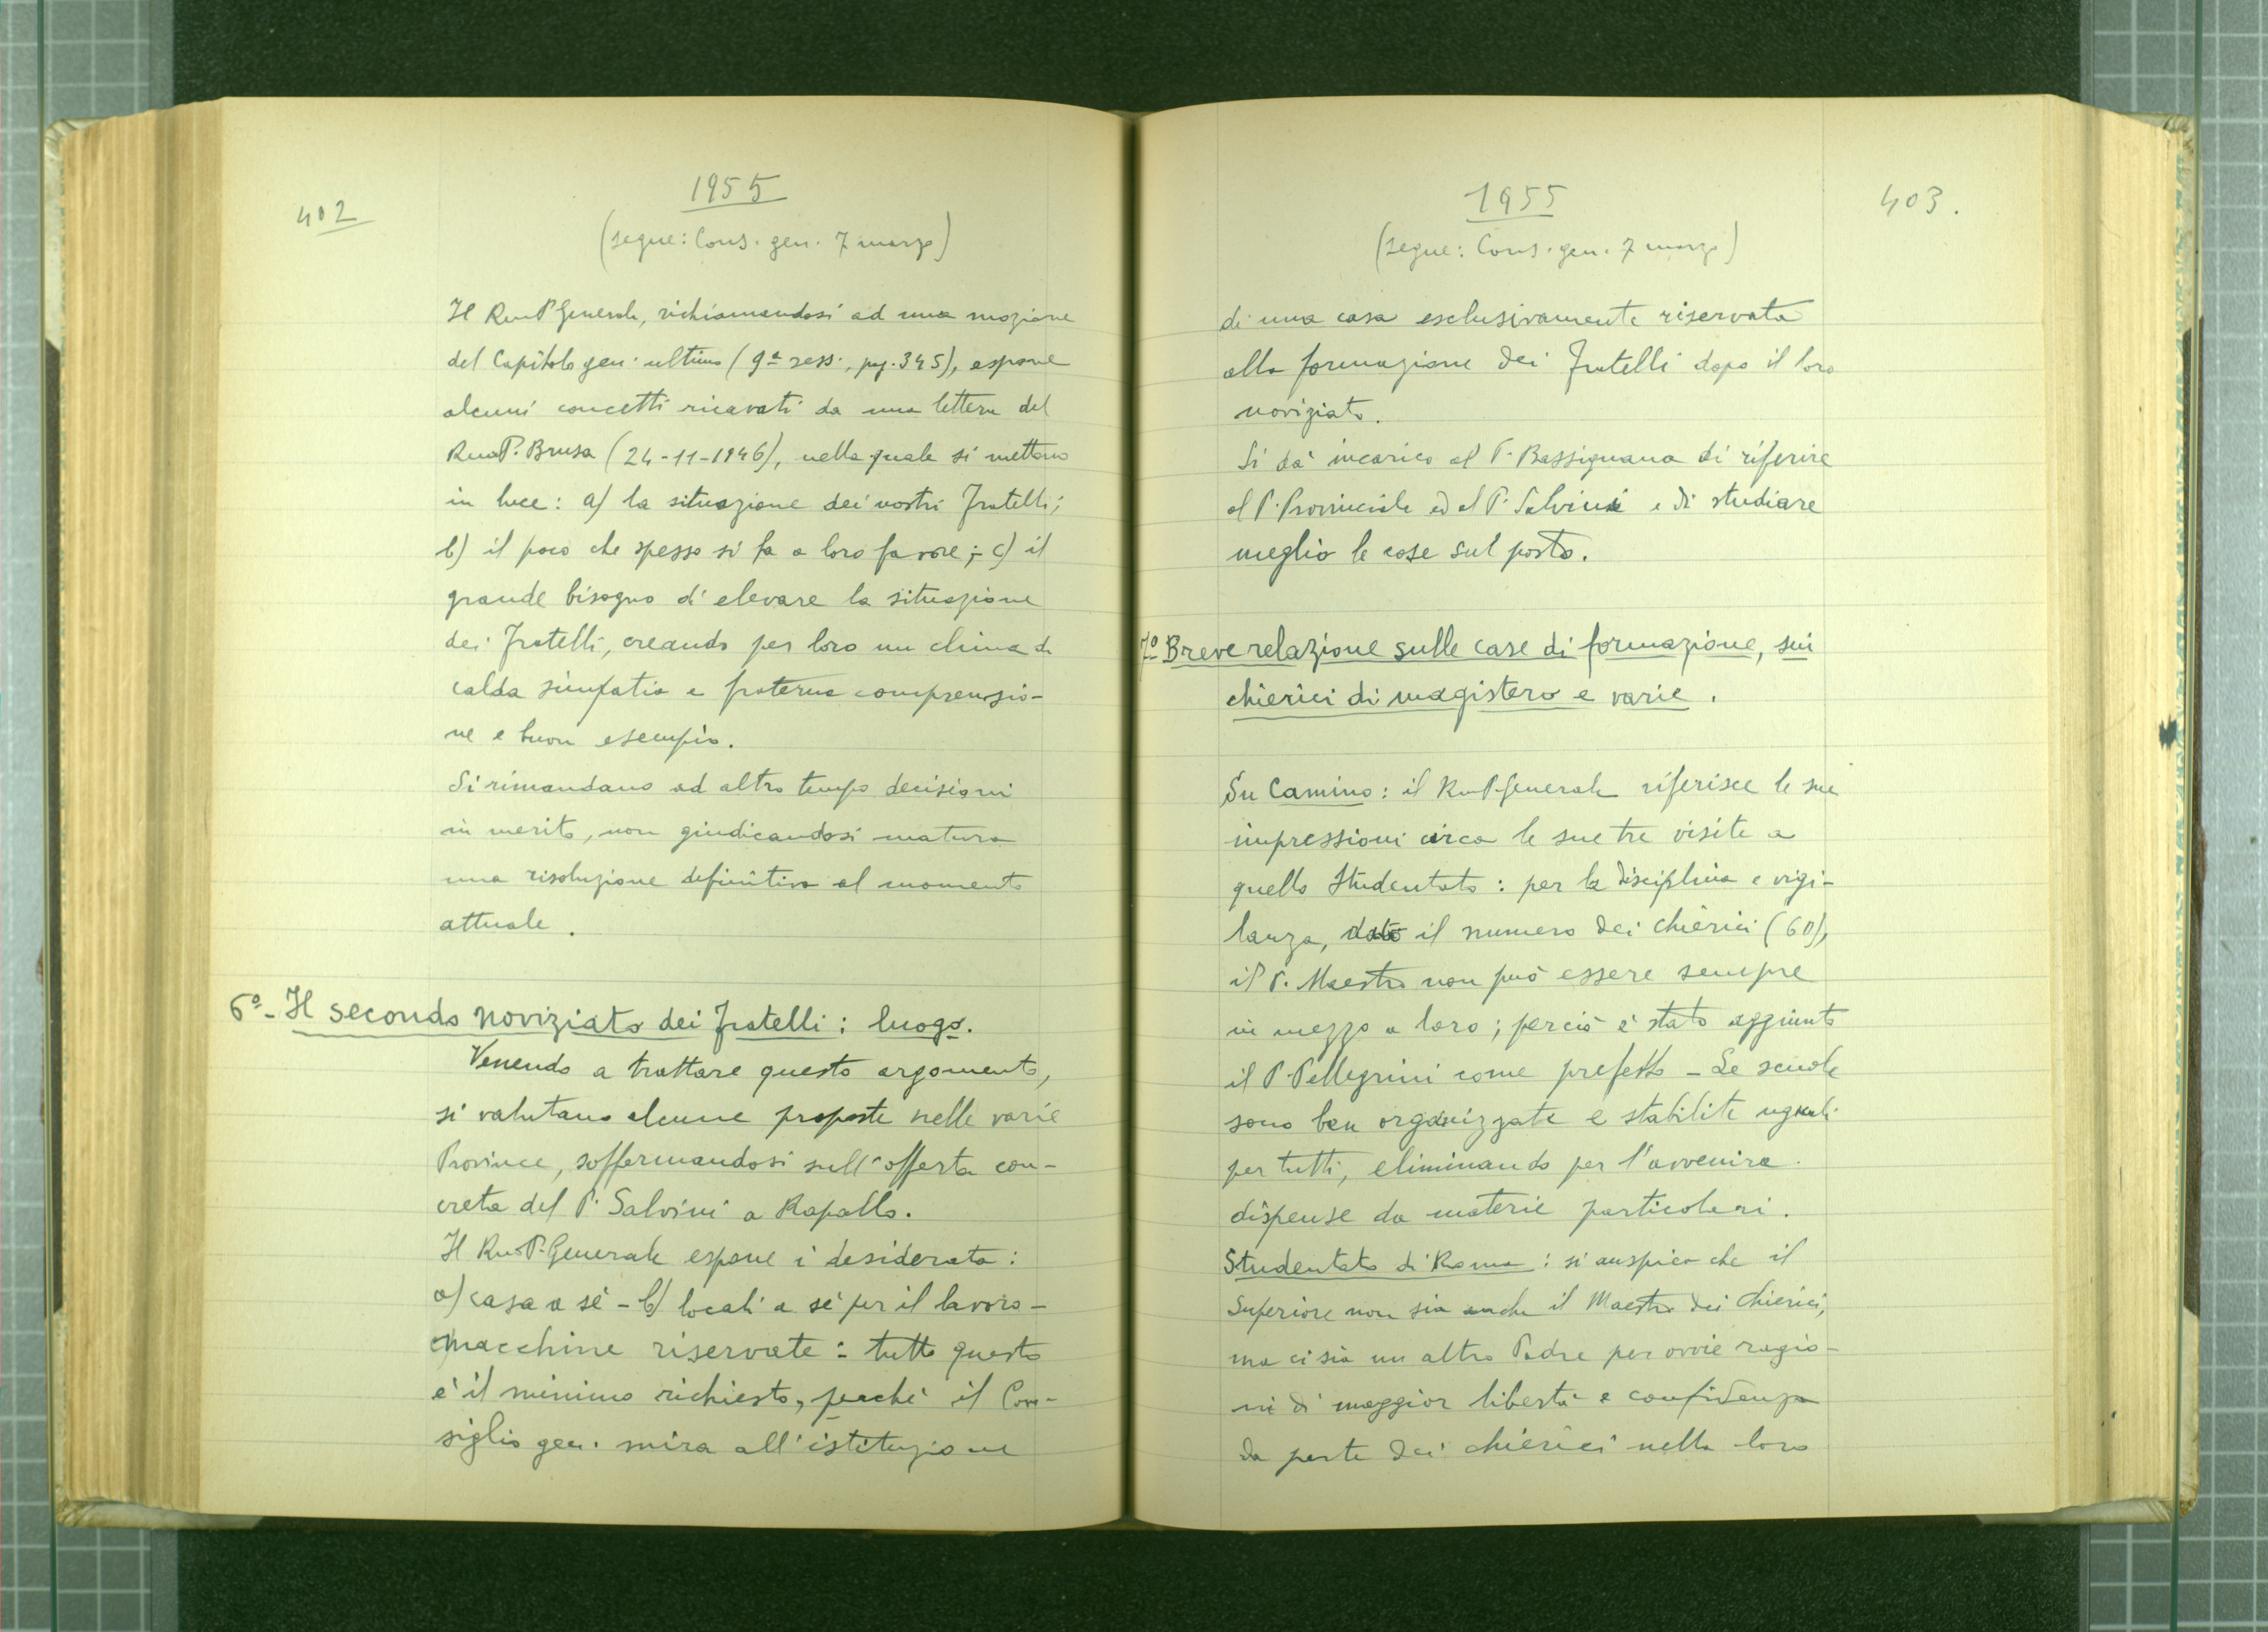 402
1955
(segue: Cons. gen. 7 marzo)
Il Rmo P. Generale, richiamandosi ad una mozione
del Capitolo gen. ultimo (9ª sess., pag. 345), espone
alcuni concetti ricavati da una lettera del
Rmo P. Brusa (24-11-1946), nella quale si mettono
in luce: a) la situazione dei nostri Fratelli;
b) il poco che spesso si fa a loro favore; c) il
grande bisogno di elevare la situazione
dei Fratelli, creando per loro un clima di
calda simpatia e fraterna comprensio-
ne e buon esempio.
Si rimandano ad altro tempo decisioni
in merito, non giudicandosi matura
una risoluzione definitiva al momento
attuale.
6º- Il secondo noviziato dei Fratelli: luogo.
Venendo a trattare questo argomento,
si valutano alcune proposte nelle varie
Province, soffermandosi sull'offerta con-
creta del P. Salvini a Rapallo.
Il Rmo P. Generale espone i desiderata:
a) casa a sé - b) locali a sé per il lavoro -
c) macchine riservate: tutto questo
è il minimo richiesto, perché il Con-
siglio gen. mira all'istituzione
1955
403.
(segue: Cons. gen. 7 marzo)
di una casa esclusivamente riservata
alla formazione dei Fratelli dopo il loro
noviziato.
Si dà incarico al P. Bassignana di riferire
al P. Provinciale ed al P. Salvini e di studiare
meglio le cose sul posto.
7º Breve relazione sulle case di formazione, sui
chierici di magistero e varie.
Su Camino: il Rmo P. Generale riferisce le sue
impressioni circa le sue tre visite a
quello Studentato: per la disciplina e vigi-
lanza, dato il numero dei chierici (60),
il P. Maestro non può essere sempre
in mezzo a loro; perciò è stato aggiunto
il P. Pellegrini come prefetto - Le scuole
sono ben organizzate e stabilite uguali
per tutti, eliminando per l'avvenire
dispense da materie particolari.
Studentato di Roma: si auspica che il
Superiore non sia anche il Maestro dei chierici,
ma ci sia un altro Padre per ovvie ragio-
ni di maggior libertà e confidenza
da parte dei chierici nella loro